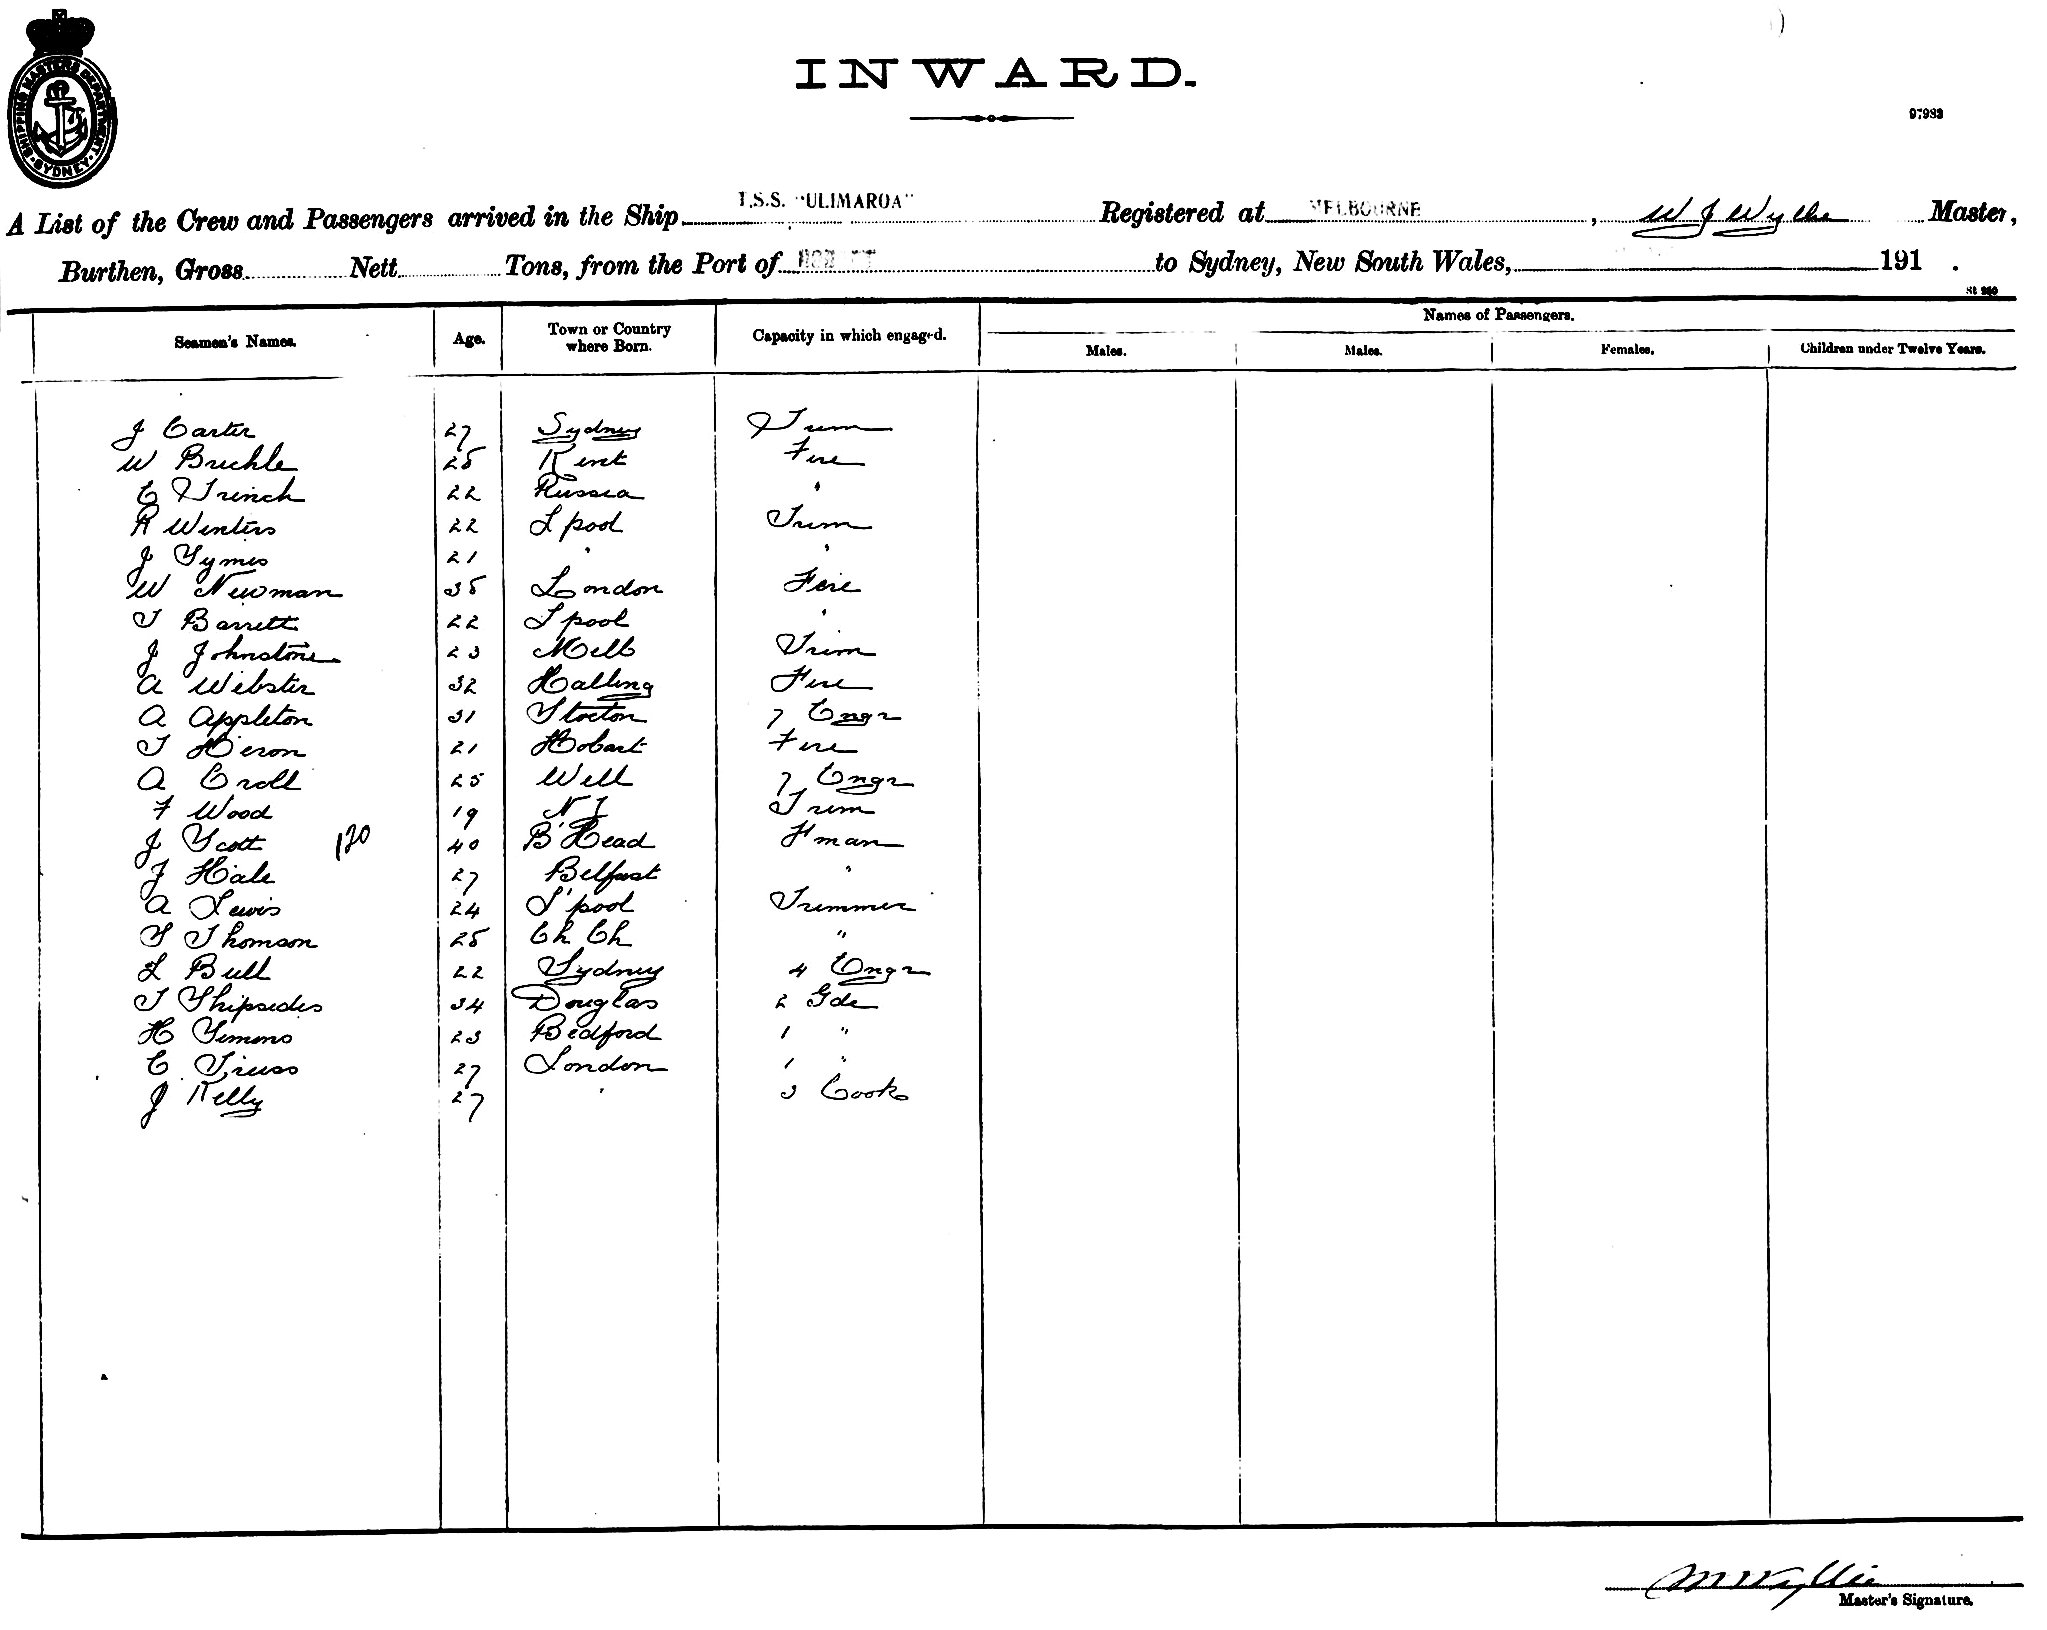 SHIPPING MASTERS DEPARTMENT · SYDNEY ·
INWARD.
97983
A List of the Crew and Passengers arrived in the Ship T.S.S. "ULIMAROA" Registered at MELBOURNE, W J Wyllie Master,
Burthen, Gross Nett Tons, from the Port of to Sydney, New South Wales, 191 .
Names of Passengers.
Seamen's Names. Age. Town or Country where Born. Capacity in which engaged. Males. Males. Females. Children under Twelve Years.
J Carter 27 Sydney Trim
W 25 Kent Fire
C French 22 Russia "
R Winters 22 L'pool Trim
J Symes 21 " "
W Newman 35 London Fire
T Barrett 22 L'pool "
J Johnstone 23 Melb Trim
A Webster 32 Halling Fire
A Appleton 31 Stockton 7 Engr
T Heron 21 Hobart Fire
A Croll 25 Well 7 Engr
F Wood 19 Trim
J Scott 120 40 B'Head F'man
J Hale 27 Belfast "
A Lewis 24 L'pool Trimmer
S Thomson 25 Ch Ch "
L Bull 22 Sydney 4 Engr
T Shipsides 34 Douglas 2 Gde
H Simms 23 Bedford 1 "
C Truss 27 London 1 "
J Kelly 27 " 3 Cook
W Wyllie
Master's Signature.